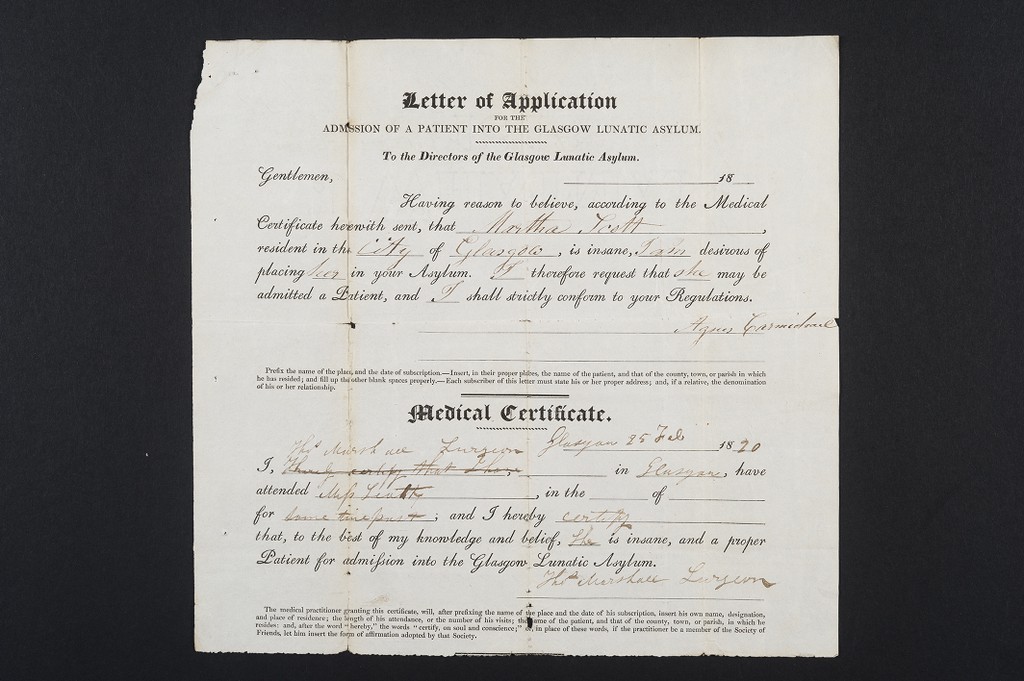 Letter of Application
FOR THE
ADMISSION OF A PATIENT INTO THE GLASGOW LUNATIC ASYLUM.
To the Directors of the Glasgow Lunatic Asylum.
Gentlemen,
18
Having reason to believe, according to the Medical
Certificate herewith sent, that Martha Scott,
resident in the City of Glasgow, is insane, I am desirous of
placing her in your Asylum. I therefore request that she may be
admitted a Patient, and I shall strictly conform to your Regulations.
Agnes Carmichael
Prefix the name of the place, and the date of subscription.—Insert, in their proper places, the name of the patient, and that of the county, town, or parish in which
he has resided; and fill up the other blank spaces properly.—Each subscriber of this letter must state his or her proper address; and, if a relative, the denomination
of his or her relationship.
Medical Certificate.
Glasgow 25 Feb 1820
Thos Marshall Surgeon
I, hereby certify that I have, in Glasgow, have
attended Miss Scott, in the of
for some time past; and I hereby certify
that, to the best of my knowledge and belief, She is insane, and a proper
Patient for admission into the Glasgow Lunatic Asylum.
Thos Marshall Surgeon
The medical practitioner granting this certificate, will, after prefixing the name of the place and the date of his subscription, insert his own name, designation,
and place of residence; the length of his attendance, or the number of his visits; the name of the patient, and that of the county, town, or parish, in which he
resides: and, after the word "hereby," the words "certify, on soul and conscience;" or, in place of these words, if the practitioner be a member of the Society of
Friends, let him insert the form of affirmation adopted by that Society.